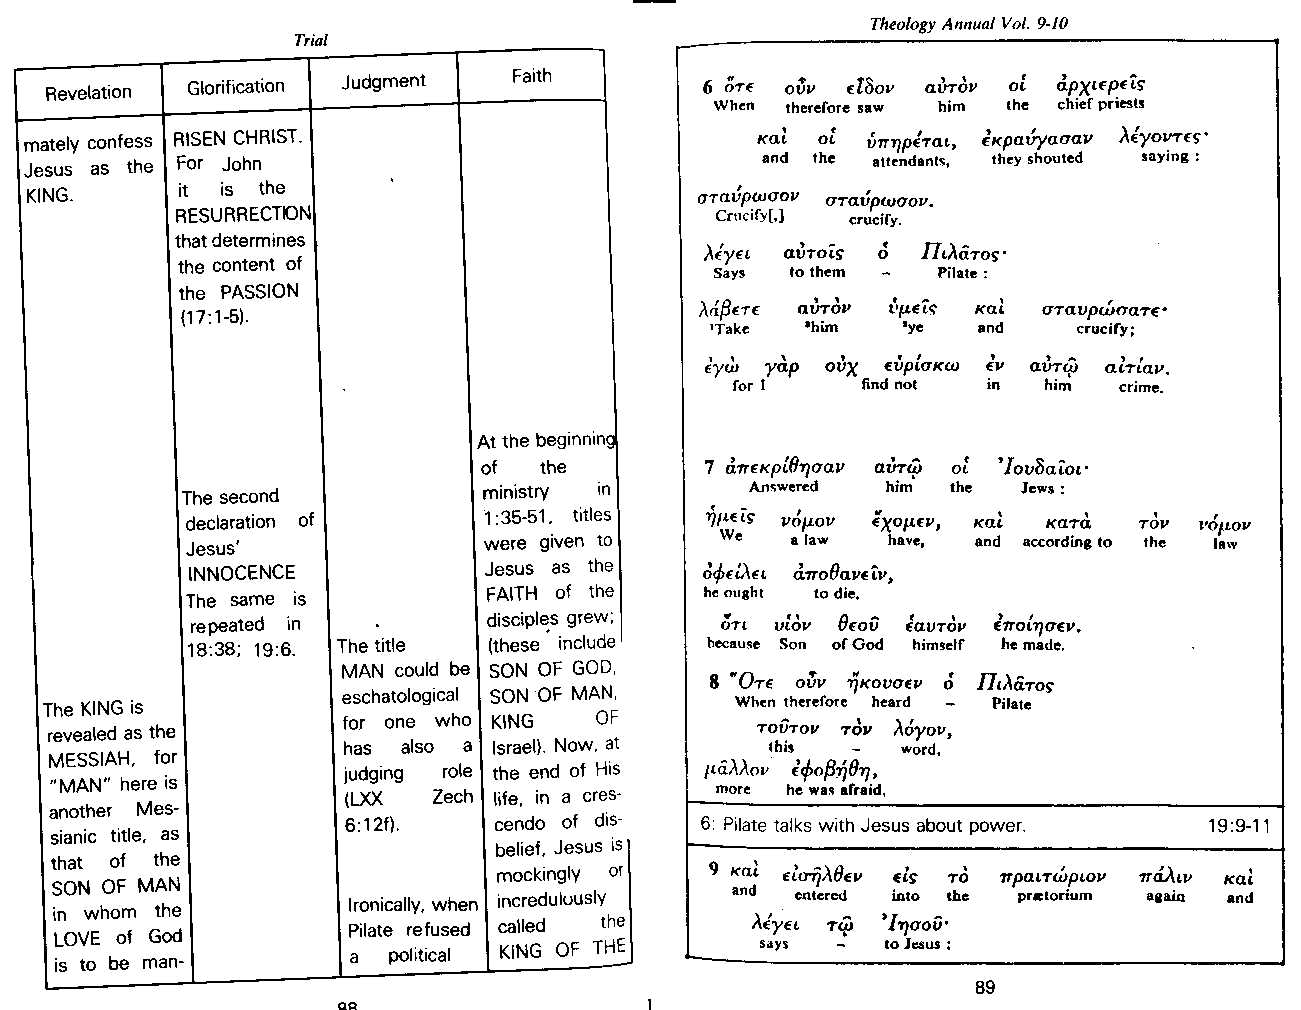 Trial
Revelation
mately confess
Jesus as the
KING.
The KING is
revealed as the
MESSIAH, for
"MAN" here is
another Mes-
sianic title, as
that of the
SON OF MAN
in whom the
LOVE of God
is to be man-
Glorification
RISEN CHRIST.
For John
it is the
RESURRECTION
that determines
the content of
the PASSION
(17:1-5).
The second
declaration of
Jesus'
INNOCENCE
The same is
repeated in
18:38; 19:6.
Judgment
The title
MAN could be
eschatological
for one who
has also a
judging role
(LXX Zech
6:12f).
Ironically, when
Pilate refused
a political
Faith
At the beginning
of the
ministry in
1:35-51, titles
were given to
Jesus as the
FAITH of the
disciples grew;
(these include
SON OF GOD,
SON OF MAN,
KING OF
Israel). Now, at
the end of His
life, in a cres-
cendo of dis-
belief, Jesus is
mockingly or
incredulously
called the
KING OF THE
88
Theology Annual Vol. 9-10
6 ὅτε οὖν εἶδον αὐτὸν οἱ ἀρχιερεῖς
When therefore saw him the chief priests
καὶ οἱ ὑπηρέται, ἐκραύγασαν λέγοντες·
and the attendants, they shouted saying :
σταύρωσον σταύρωσον.
Crucify[,] crucify.
λέγει αὐτοῖς ὁ Πιλᾶτος·
Says to them – Pilate :
λάβετε αὐτὸν ὑμεῖς καὶ σταυρώσατε·
¹Take ³him ²ye and crucify;
ἐγὼ γὰρ οὐχ εὑρίσκω ἐν αὐτῷ αἰτίαν.
for I find not in him crime.
7 ἀπεκρίθησαν αὐτῷ οἱ Ἰουδαῖοι·
Answered him the Jews :
ἡμεῖς νόμον ἔχομεν, καὶ κατὰ τὸν νόμον
We a law have, and according to the law
ὀφείλει ἀποθανεῖν,
he ought to die,
ὅτι υἱὸν θεοῦ ἑαυτὸν ἐποίησεν.
because Son of God himself he made.
8 Ὅτε οὖν ἤκουσεν ὁ Πιλᾶτος
When therefore heard – Pilate
τοῦτον τὸν λόγον,
this – word,
μᾶλλον ἐφοβήθη,
more he was afraid,
6: Pilate talks with Jesus about power. 19:9-11
9 καὶ εἰσῆλθεν εἰς τὸ πραιτώριον πάλιν καὶ
and entered into the prætorium again and
λέγει τῷ Ἰησοῦ·
says – to Jesus :
89